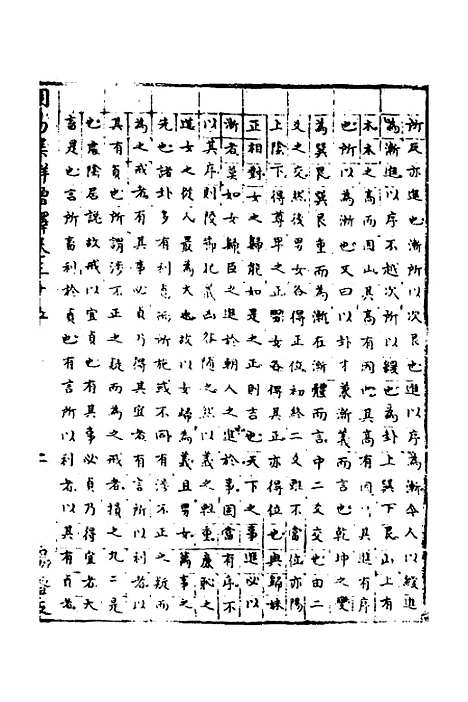 所反亦進也漸所以次艮也進以序為漸今人以緩進
為漸進以序不越次所以緩也為卦上巽下艮山上有
木木之高而因山其高有因也其高有因乃其進有序
也所以為漸也又曰以卦才義漸義而言也乾坤之變
為巽艮巽艮重而為漸在漸體而言中二爻交也由二
爻之交然後男女各得正位初終二爻雖不當位亦陽
上陰下得尊卑之正男女各得其正亦得位也與歸妹
正相對女之歸能如是之正則吉也天下之事進必以
漸者莫如女歸臣之進於朝人之進於事固當有序不
以其序則陵節犯義凶咎隨之然以義之輕重廉恥之
道女之從人最為大也故以女歸為義且男女萬事之
先也諸卦多有利貞而所施或不同有涉不正之疑而
為之戒者有其事必貞乃得其宜者有言所以利者以
其有貞也所謂涉不正之疑而為之戒者損之九二是
也處陰居說故戒以宜貞也有其事必貞乃得宜者大
畜是也言所畜利於貞也有言所以利者以其有貞者
周易集
二